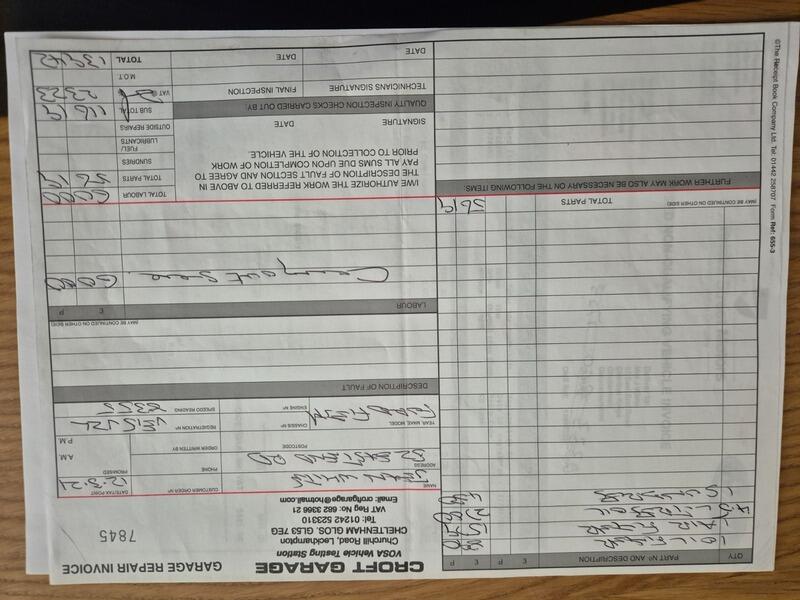 CROFT GARAGE
VOSA Vehicle Testing Station
Churchill Road, Leckhampton
CHELTENHAM GLOS. GL53 7EG
Tel: 01242 523310
VAT Reg No: 682 3366 21
Email: croftgarage@hotmail.com
GARAGE REPAIR INVOICE
7845
QTY PART Nº AND DESCRIPTION £ P £ P
1 OIL FILTER
1 AIR FILTER
4.5 LITRES OIL
1 SUNDRIES
NAME
CUSTOMER ORDER Nº
DATE/TAX POINT
12-3-21
ADDRESS
PHONE
PROMISED
A.M.
P.M.
POSTCODE
ORDER WRITTEN BY
YEAR, MAKE, MODEL
FORD FIESTA
CHASSIS Nº
REGISTRATION Nº
ENGINE Nº
SPEEDO READING
DESCRIPTION OF FAULT
(MAY BE CONTINUED ON OTHER SIDE)
LABOUR £ P
Carry out Service 60 00
(MAY BE CONTINUED ON OTHER SIDE) TOTAL PARTS 56 19
FURTHER WORK MAY ALSO BE NECESSARY ON THE FOLLOWING ITEMS:
I/WE AUTHORIZE THE WORK REFERRED TO ABOVE IN
THE DESCRIPTION OF FAULT SECTION AND AGREE TO
PAY ALL SUMS DUE UPON COMPLETION OF WORK
PRIOR TO COLLECTION OF THE VEHICLE.
SIGNATURE DATE
QUALITY INSPECTION CHECKS CARRIED OUT BY:
TECHNICIANS SIGNATURE FINAL INSPECTION
DATE DATE
TOTAL LABOUR 60 00
TOTAL PARTS 56 19
SUNDRIES
FUEL/
LUBRICANTS
OUTSIDE REPAIRS
SUB TOTAL 116 19
VAT 23 23
M.O.T.
TOTAL 139 42
©The Receipt Book Company Ltd. Tel: 01442 258707 Form Ref: 655-3